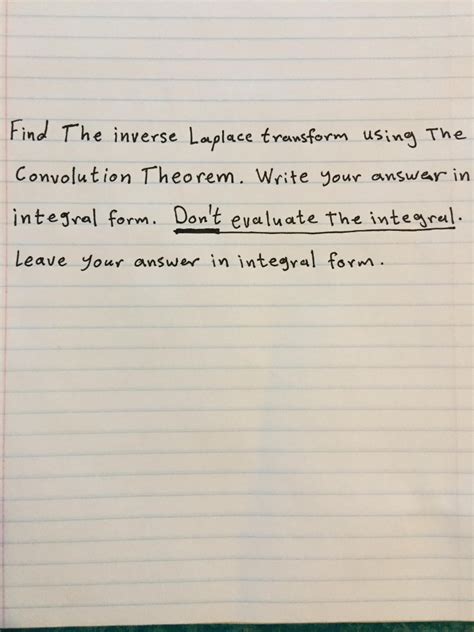 Find The inverse Laplace transform using The
Convolution Theorem. Write your answer in
integral form. Don't evaluate the integral.
Leave your answer in integral form.